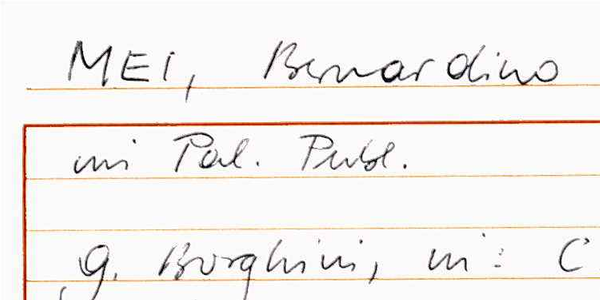 MEI, Bernardino
in Pal. Publ.
G. Borghini, in: C